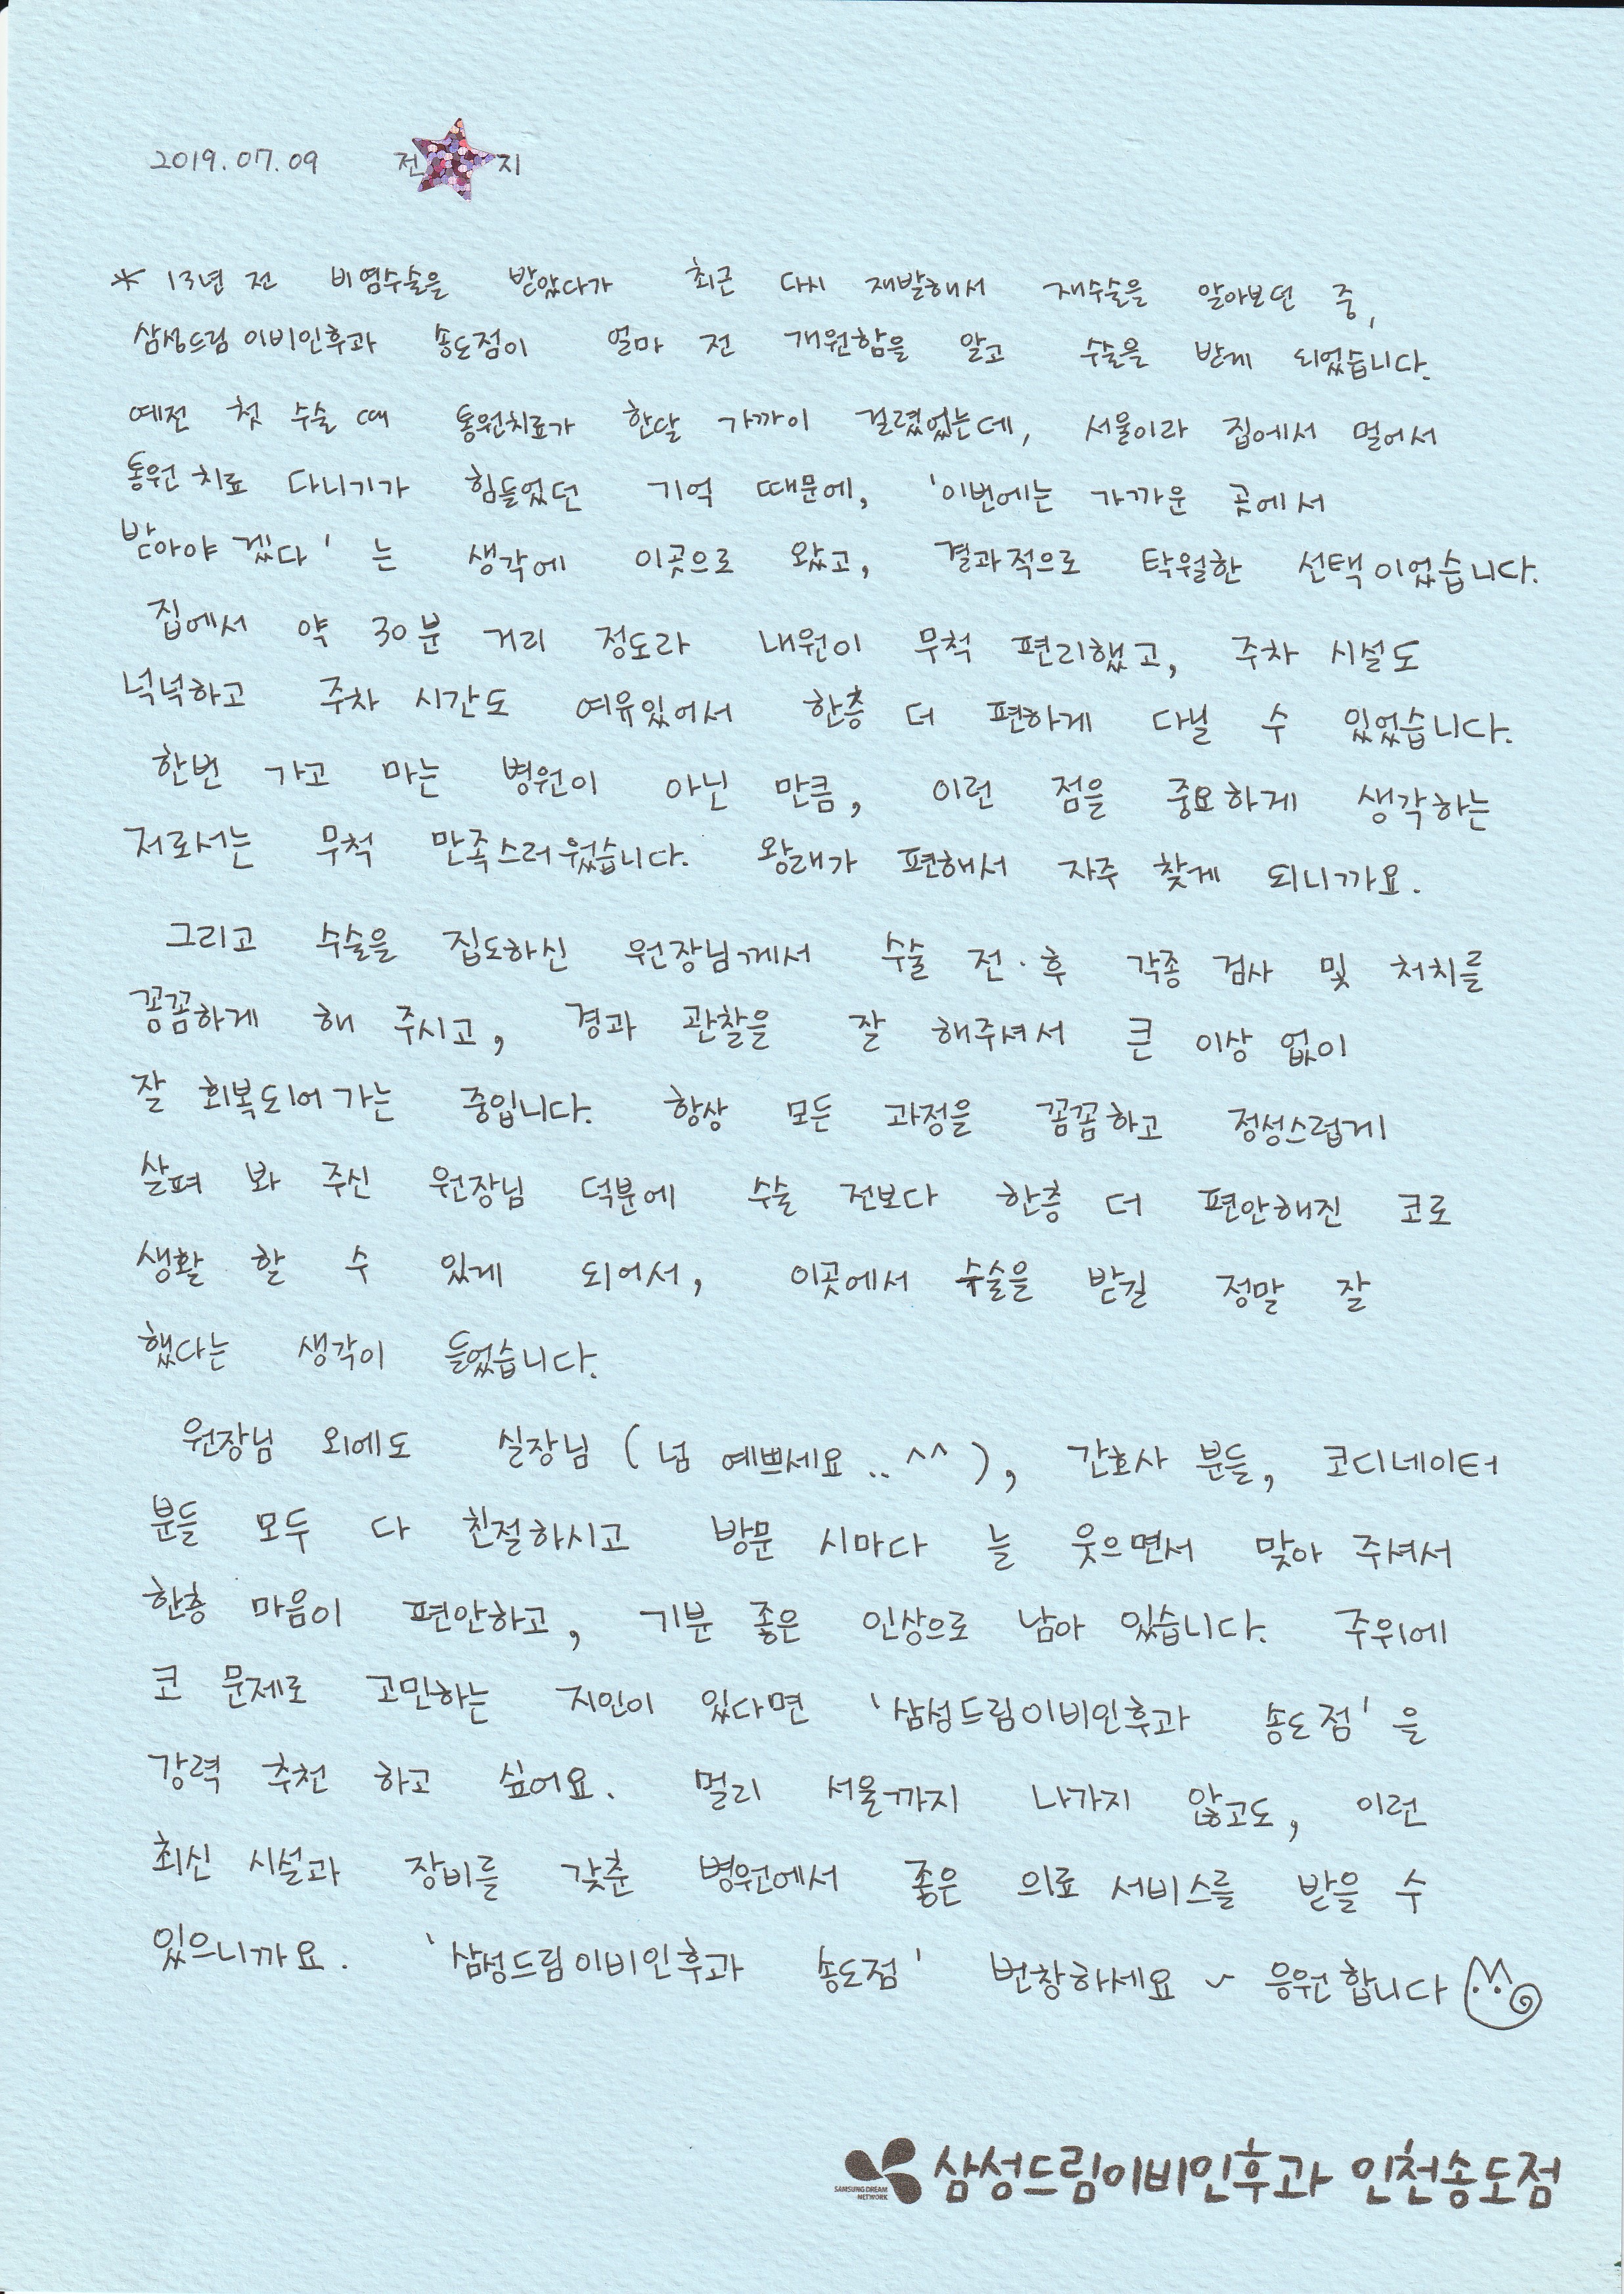 2019.07.09 전 지
* 13년 전 비염수술을 받았다가 최근 다시 재발해서 재수술을 알아보던 중,
삼성드림이비인후과 송도점이 얼마 전 개원함을 알고 수술을 받게 되었습니다.
예전 첫 수술 때 통원치료가 한달 가까이 걸렸었는데, 서울이라 집에서 멀어서
통원 치료 다니기가 힘들었던 기억 때문에, '이번에는 가까운 곳에서
받아야겠다' 는 생각에 이곳으로 왔고, 결과적으로 탁월한 선택이었습니다.
집에서 약 30분 거리 정도라 내원이 무척 편리했고, 주차 시설도
넉넉하고 주차 시간도 여유있어서 한층 더 편하게 다닐 수 있었습니다.
한번 가고 마는 병원이 아닌 만큼, 이런 점을 중요하게 생각하는
저로서는 무척 만족스러웠습니다. 왕래가 편해서 자주 찾게 되니까요.
그리고 수술을 집도하신 원장님께서 수술 전·후 각종 검사 및 처치를
꼼꼼하게 해 주시고, 경과 관찰을 잘 해주셔서 큰 이상 없이
잘 회복되어가는 중입니다. 항상 모든 과정을 꼼꼼하고 정성스럽게
살펴 봐 주신 원장님 덕분에 수술 전보다 한층 더 편안해진 코로
생활 할 수 있게 되어서, 이곳에서 수술을 받길 정말 잘
했다는 생각이 들었습니다.
원장님 외에도 실장님 (넘 예쁘세요..^^), 간호사 분들, 코디네이터
분들 모두 다 친절하시고 방문 시마다 늘 웃으면서 맞아 주셔서
한층 마음이 편안하고, 기분 좋은 인상으로 남아 있습니다. 주위에
코 문제로 고민하는 지인이 있다면 '삼성드림이비인후과 송도점'을
강력 추천 하고 싶어요. 멀리 서울까지 나가지 않고도, 이런
최신 시설과 장비를 갖춘 병원에서 좋은 의료 서비스를 받을 수
있으니까요. '삼성드림이비인후과 송도점' 번창하세요~ 응원합니다
SAMSUNG DREAM NETWORK 삼성드림이비인후과 인천송도점